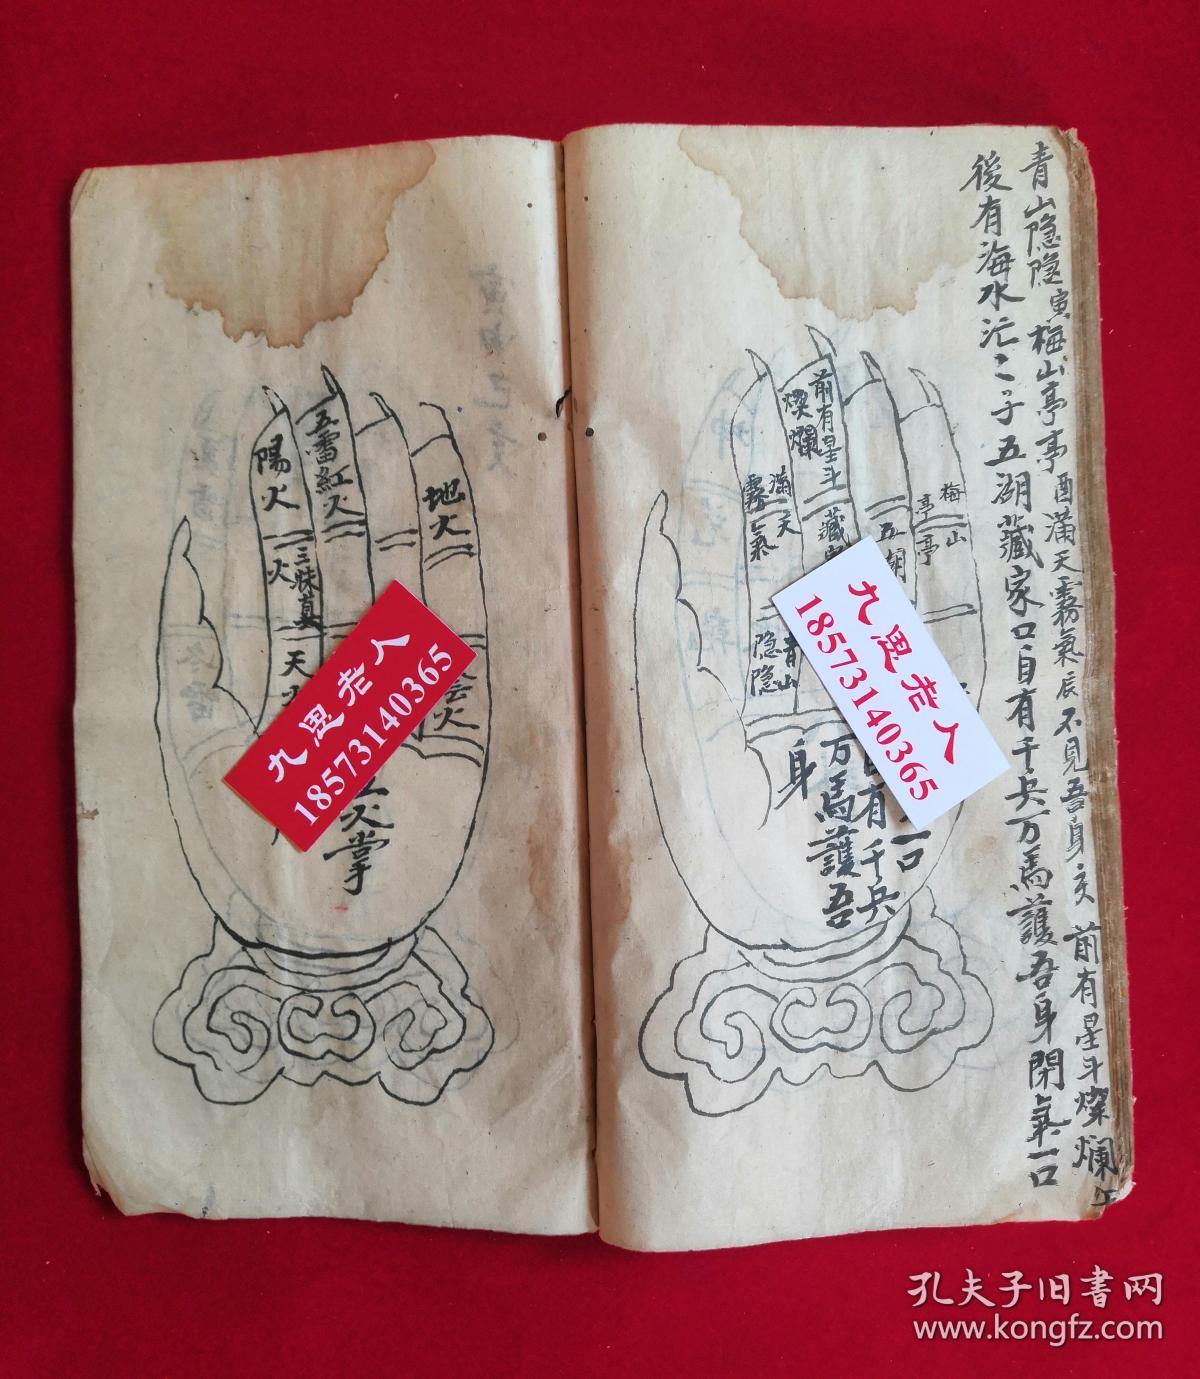 青山隐隐寅梅山亭亭酉滿天霧氣辰不見吾身亥前有星斗燦爛午
後有海水汒〻子五湖藏家口自有千兵万馬護吾身閉氣一口
梅山
亭亭
五湖
前有星斗
燦爛
滿天
霧氣
青山
隐隐
一口
有千兵
万馬護吾
身
地火
五雷紅火
陽火
三昧真
火
天
火掌
九思老人
18573140365
九思老人
18573140365
孔夫子旧书网
www.kongfz.com